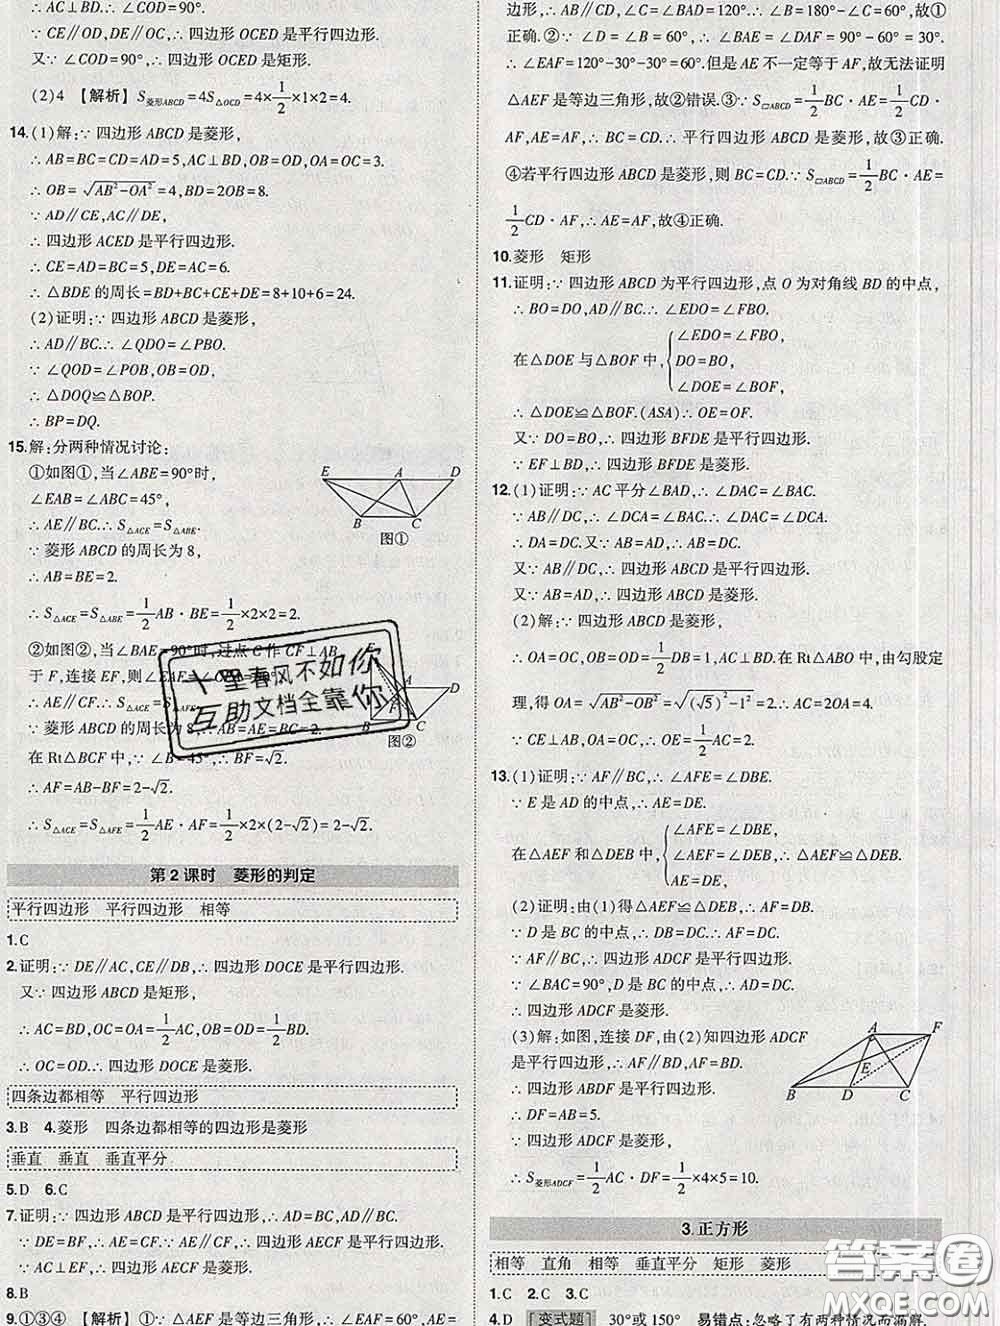 ∴ AC⊥BD. ∴ ∠COD=90°.
∵ CE∥OD, DE∥OC, ∴ 四边形 OCED 是平行四边形.
又∵ ∠COD=90°, ∴ 四边形 OCED 是矩形.
(2)4 【解析】S菱形ABCD=4S△OCD=4×1/2×1×2=4.
14.(1)解:∵ 四边形 ABCD 是菱形,
∴ AB=BC=CD=AD=5, AC⊥BD, OB=OD, OA=OC=3.
∴ OB=√(AB²-OA²)=4, BD=2OB=8.
∵ AD∥CE, AC∥DE,
∴ 四边形 ACED 是平行四边形.
∴ CE=AD=BC=5, DE=AC=6.
∴ △BDE 的周长=BD+BC+CE+DE=8+10+6=24.
(2)证明:∵ 四边形 ABCD 是菱形,
∴ AD∥BC. ∴ ∠QDO=∠PBO.
∵ ∠QOD=∠POB, OB=OD,
∴ △DOQ≌△BOP.
∴ BP=DQ.
15.解:分两种情况讨论:
①如图①,当∠ABE=90°时,
∠EAB=∠ABC=45°,
∴ AE∥BC. ∴ S△ACE=S△ABE.
∵ 菱形 ABCD 的周长为 8,
∴ AB=BE=2.
∴ S△ACE=S△ABE=1/2AB·BE=1/2×2×2=2.
E A D
B C
图①
②如图②,当∠BAE=90°时,过点 C 作 CF⊥AB
于 F,连接 EF,则∠EAB=∠
∴ AE∥CF. ∴ S△ACE=S△AFE.
∵ 菱形 ABCD 的周长为 8, ∴ AB=AE=BC=2.
在 Rt△BCF 中, ∵ ∠B=45°, ∴ BF=√2.
∴ AF=AB-BF=2-√2.
∴ S△ACE=S△AFE=1/2AE·AF=1/2×2×(2-√2)=2-√2.
A D
F
B C
图②
十里春风不如你
互助文档全靠你
第2课时 菱形的判定
平行四边形 平行四边形 相等
1.C
2.证明:∵ DE∥AC, CE∥DB, ∴ 四边形 DOCE 是平行四边形.
又∵ 四边形 ABCD 是矩形,
∴ AC=BD, OC=OA=1/2AC, OB=OD=1/2BD.
∴ OC=OD. ∴ 四边形 DOCE 是菱形.
四条边都相等 平行四边形
3.B 4.菱形 四条边都相等的四边形是菱形
垂直 垂直 垂直平分
5.D 6.C
7.证明:∵ 四边形 ABCD 是平行四边形, ∴ AB∥CD.
∵ DE=BF, ∴ AE=CF. ∴ 四边形 AECF 是平行四边形.
∵ AC⊥EF, ∴ 四边形 AECF 是菱形.
8.B
9.①③④ 【解析】①∵ △AEF 是等边三角形, ∴ ∠EAF=60°,
边形, ∴ AB∥CD. ∴ ∠C=∠BAD=120°. ∴ ∠C=∠BAD, 故①
正确. ②∵ ∠D=∠B=60°, ∴ ∠BAE=∠DAF=90°-60°=30°.
∴ ∠EAF=120°-30°-30°=60°. 但是 AE 不一定等于 AF, 故无法证明
△AEF 是等边三角形, 故②错误. ③∵ S▱ABCD=1/2BC·AE=1/2CD·
AF, AE=AF, ∴ BC=CD. ∴ 平行四边形 ABCD 是菱形, 故③正确.
④若平行四边形 ABCD 是菱形, 则 BC=CD. ∵ S▱ABCD=1/2BC·AE=
1/2CD·AF, ∴ AE=AF, 故④正确.
10.菱形 矩形
11.证明:∵ 四边形 ABCD 为平行四边形,点 O 为对角线 BD 的中点,
∴ BO=DO, AD∥BC. ∴ ∠EDO=∠FBO.
在△DOE 与△BOF 中, {∠EDO=∠FBO, DO=BO, ∠DOE=∠BOF,
∴ △DOE≌△BOF. (ASA) ∴ OE=OF.
又∵ DO=BO, ∴ 四边形 BFDE 是平行四边形.
∵ EF⊥BD, ∴ 四边形 BFDE 是菱形.
12.(1)证明:∵ AC 平分∠BAD, ∴ ∠DAC=∠BAC.
∵ AB∥DC, ∴ ∠DCA=∠BAC. ∴ ∠DAC=∠DCA.
∴ DA=DC. 又∵ AB=AD, ∴ AB=DC.
又∵ AB∥DC, ∴ 四边形 ABCD 是平行四边形.
又∵ AB=AD, ∴ 四边形 ABCD 是菱形.
(2)解:∵ 四边形 ABCD 是菱形,
∴ OA=OC, OB=OD, OB=1/2DB=1. 在 Rt△ABO 中,由勾股定
理,得 OA=√(AB²-OB²)=√((√5)²-1²)=2. ∴ AC=2OA=4.
∵ CE⊥AB, OA=OC, ∴ OE=1/2AC=2.
13.(1)证明:∵ AF∥BC, ∴ ∠AFE=∠DBE.
∵ E 是 AD 的中点, ∴ AE=DE.
在△AEF 和△DEB 中, {∠AFE=∠DBE, ∠AEF=∠DEB, AE=DE, ∴ △AEF≌△DEB.
(2)证明:由(1)得△AEF≌△DEB, ∴ AF=DB.
∵ D 是 BC 的中点, ∴ DB=DC. ∴ AF=DC.
∵ AF∥BC, ∴ 四边形 ADCF 是平行四边形.
∵ ∠BAC=90°, D 是 BC 的中点, ∴ AD=DC.
∴ 四边形 ADCF 是菱形.
(3)解:如图,连接 DF,由(2)知四边形 ADCF
是平行四边形, ∴ AF∥BD, AF=BD.
∴ 四边形 ABDF 是平行四边形.
∴ DF=AB=5.
∵ 四边形 ADCF 是菱形,
∴ S菱形ADCF=1/2AC·DF=1/2×4×5=10.
A F
E
B D C
3.正方形
相等 直角 相等 垂直平分 矩形 菱形
1.C 2.C 3.C
4.D 【变式题】 30°或 150° 易错点:忽略了有两种情况而漏解.
答案圈
MXQE.COM